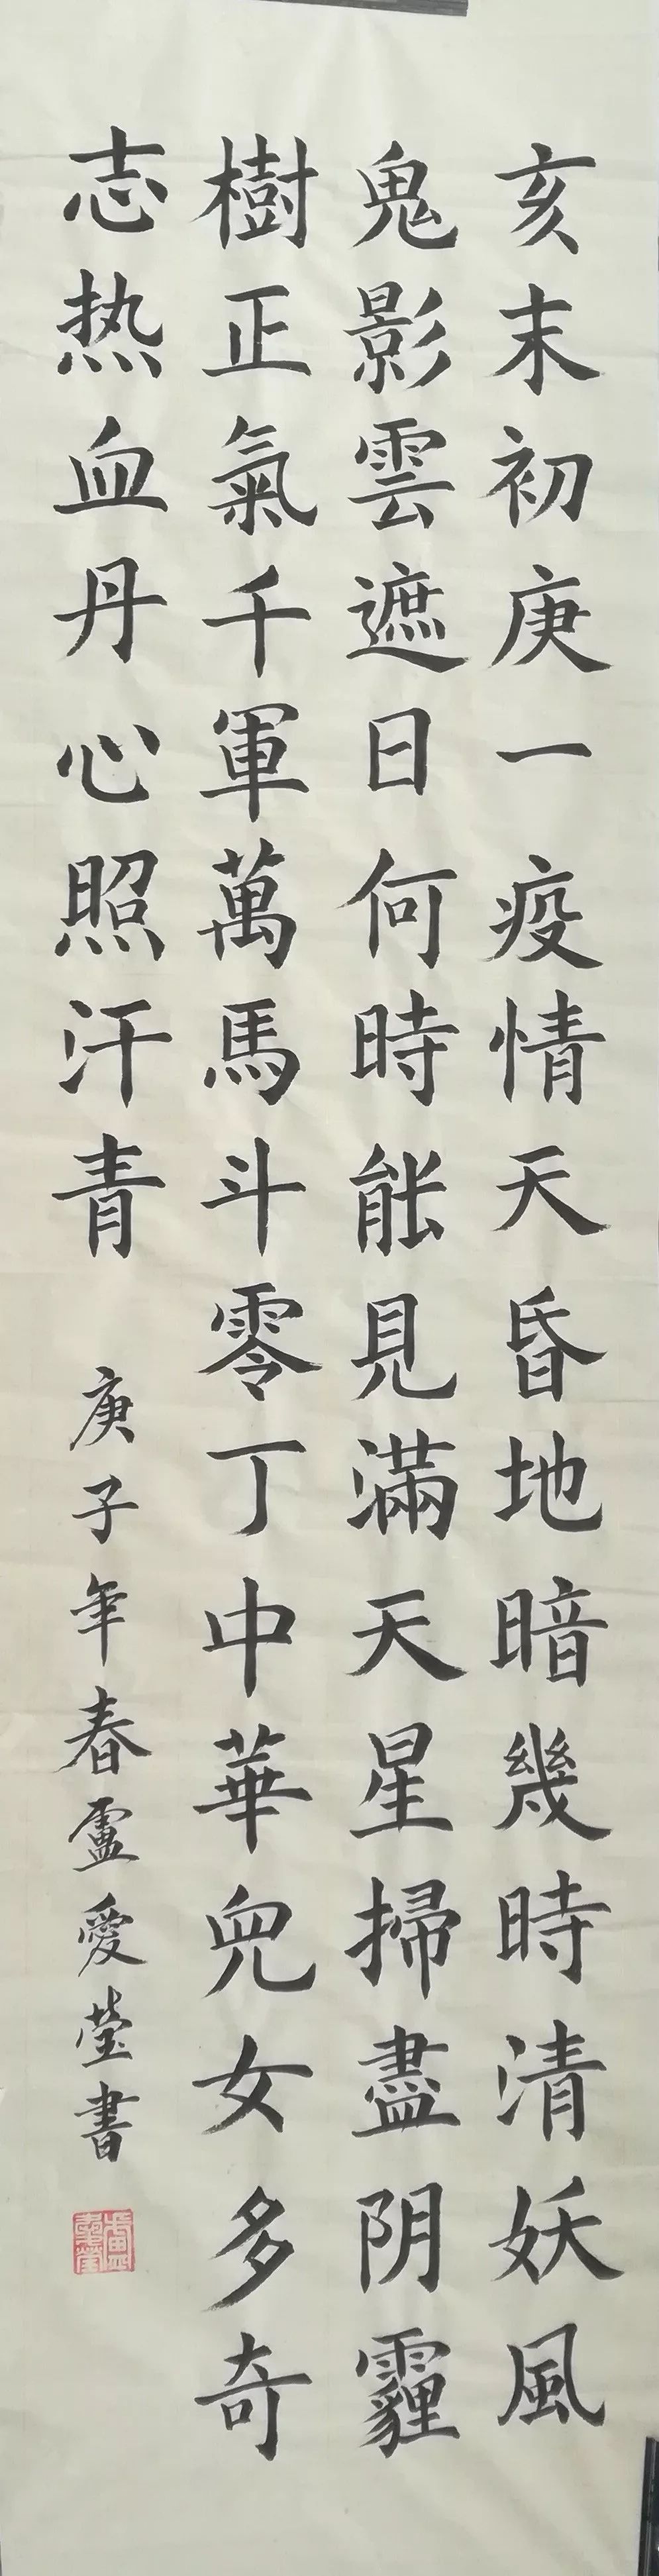 亥末初庚一疫情天昏地暗幾時清妖風
鬼影雲遮日何時能見滿天星掃盡阴霾
樹正氣千軍萬馬斗零丁中華兒女多奇
志热血丹心照汗青
庚子年春盧愛瑩書
盧愛瑩